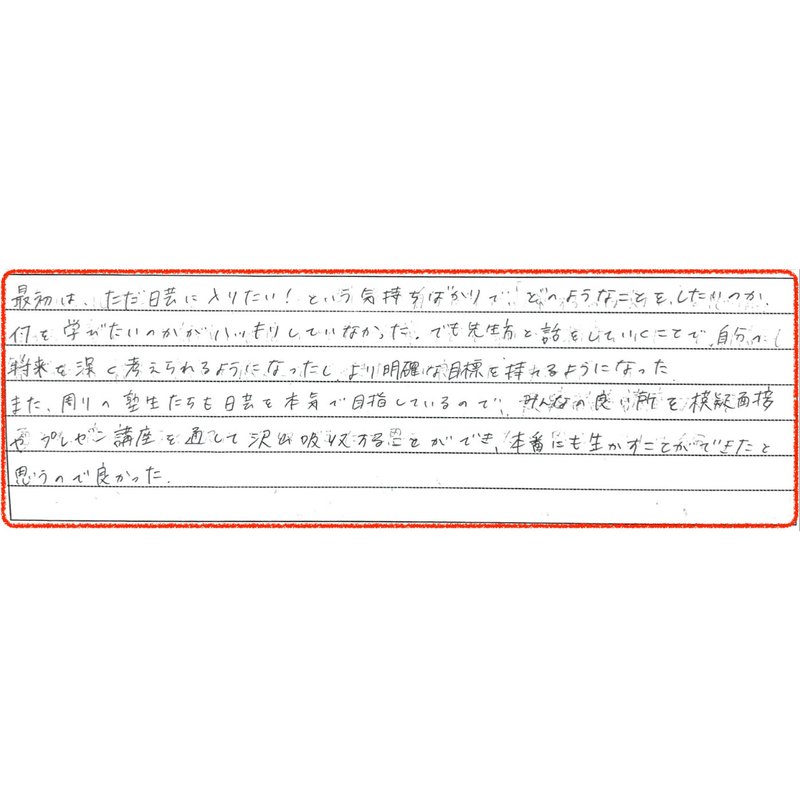 最初は、ただ日芸に入りたい！という気持ちばかりで、どのようなことをしたいのか、
何を学びたいのかがハッキリしていなかった。でも先生方と話をしていくことで、自分の
将来を深く考えられるようになったし、より明確な目標を持てるようになった。
また、周りの塾生たちも日芸を本気で目指しているので、みんなの良い所を模擬面接
やプレゼン講座を通して沢山吸収することができ、本番にも生かすことができたと
思うので良かった。